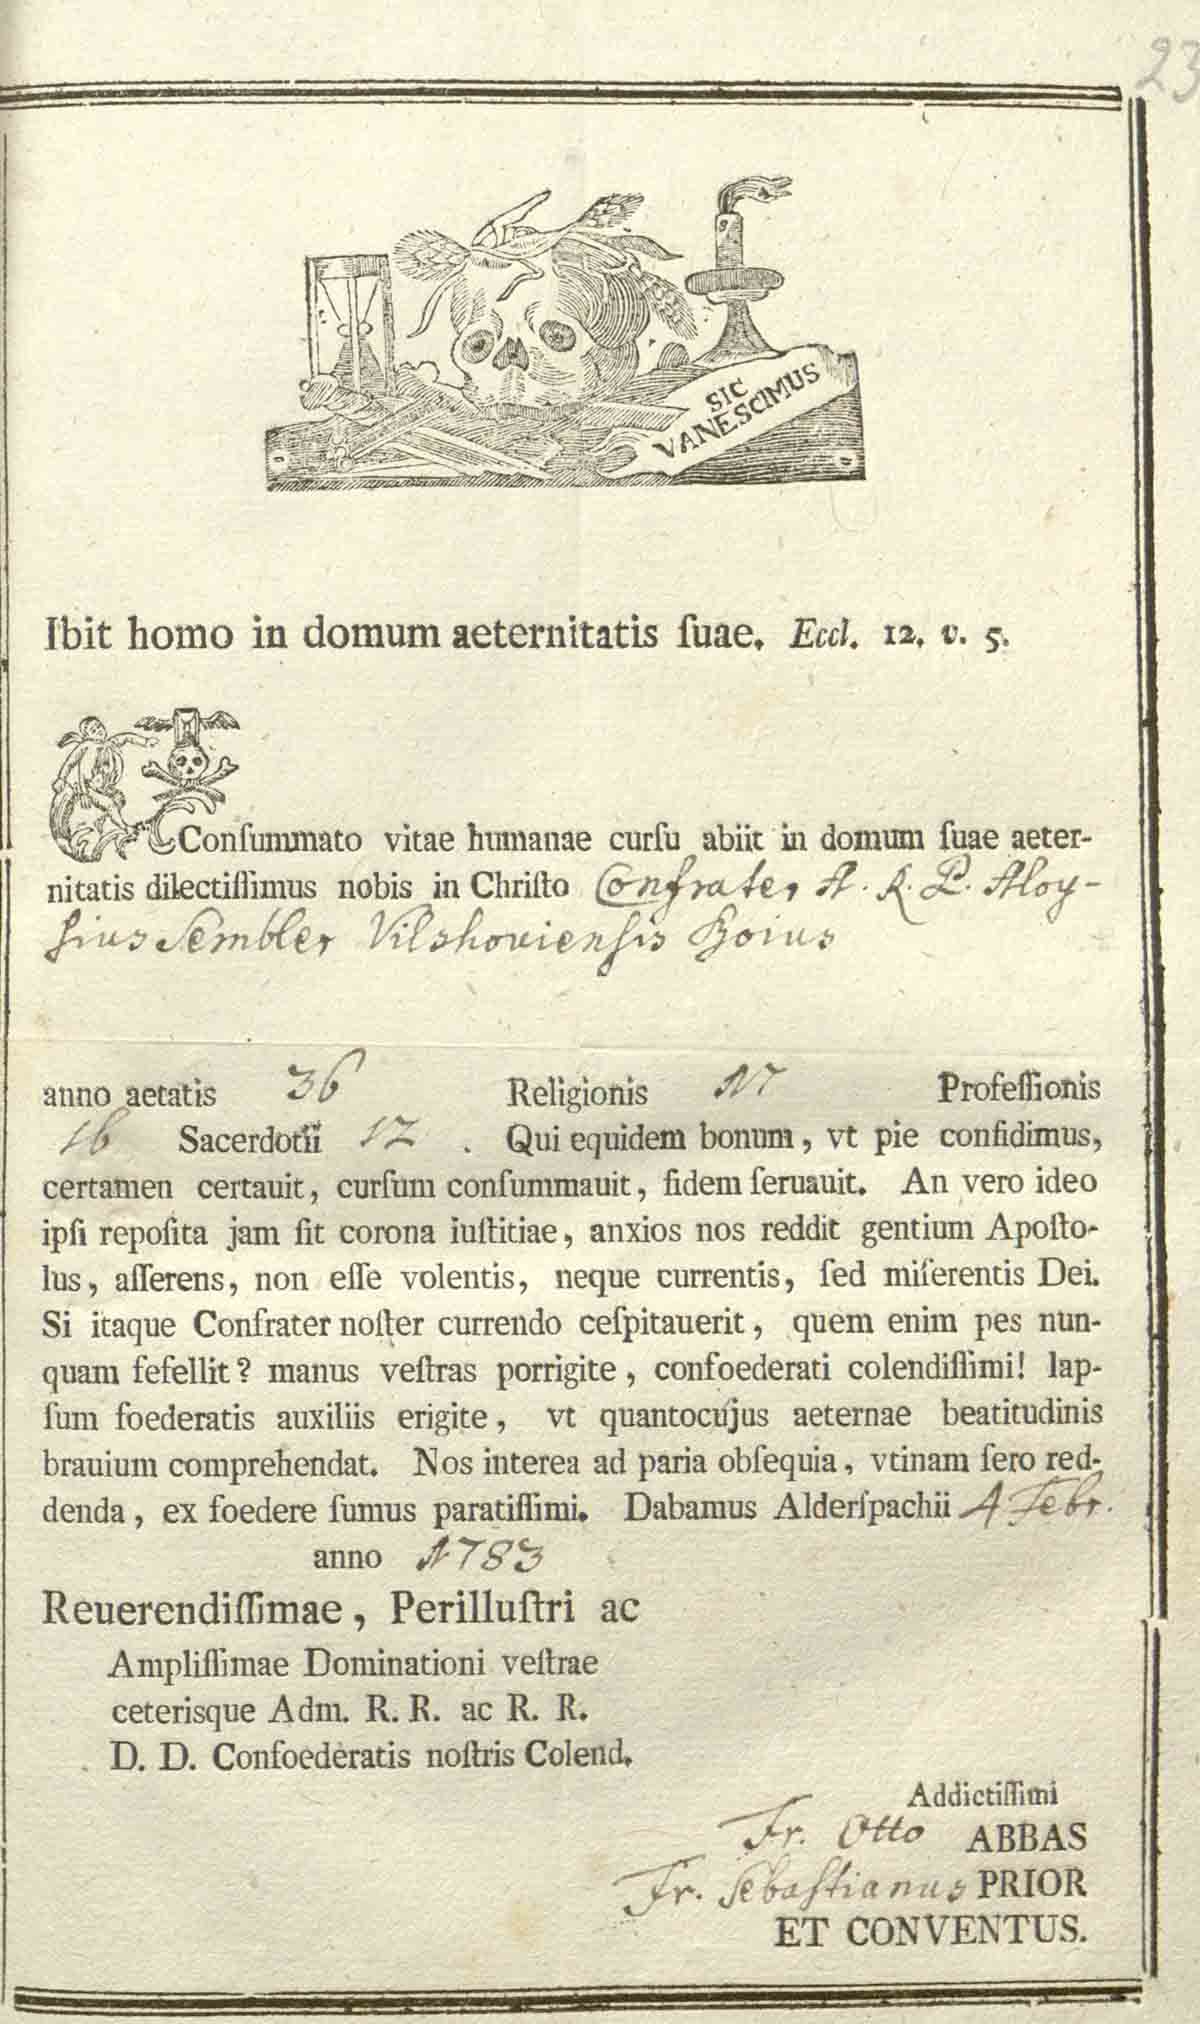 23
SIC
VANESCIMUS
Ibit homo in domum aeternitatis ſuae. Eccl. 12. v. 5.
Conſummato vitae humanae curſu abiit in domum ſuae aeter-
nitatis dilectiſſimus nobis in Chriſto Confrater A. R. P. Aloy-
ſius Sembler Vilshoviensis Boius
anno aetatis 36 Religionis 17 Profeſſionis
16 Sacerdotii 12. Qui equidem bonum, vt pie confidimus,
certamen certauit, curſum conſummauit, fidem ſeruauit. An vero ideo
ipſi repoſita jam ſit corona iuſtitiae, anxios nos reddit gentium Apoſto-
lus, aſſerens, non eſſe volentis, neque currentis, ſed miſerentis Dei.
Si itaque Confrater noſter currendo ceſpitauerit, quem enim pes nun-
quam fefellit? manus veſtras porrigite, confoederati colendiſſimi! lap-
ſum foederatis auxiliis erigite, vt quantocujus aeternae beatitudinis
brauium comprehendat. Nos interea ad paria obſequia, vtinam ſero red-
denda, ex foedere ſumus paratiſſimi. Dabamus Alderſpachii 4 Febr.
anno 1783
Reuerendiſſimae, Perilluſtri ac
Ampliſſimae Dominationi veſtrae
ceterisque Adm. R. R. ac R. R.
D. D. Confoederatis noſtris Colend.
Addictiſſimi
Fr. Otto ABBAS
Fr. Sebaſtianus PRIOR
ET CONVENTUS.